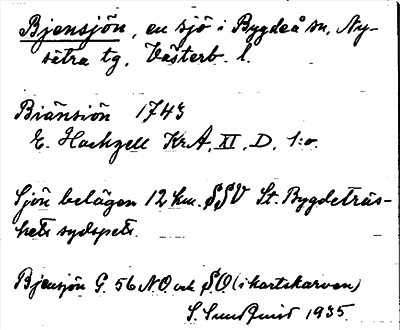 Bjensjön, en sjö i Bygdeå sn, Ny-
sätra tg, Västerb. l.
Biänsiön 1743
E. Hackzell KrA, XI, D, 1:o.
Sjön belägen 12 km. SSV St. Bygdeträs-
kets sydspets.
Bjensjön G. 56 NO och SO (i kartskarven)
S. Sundquist 1935.